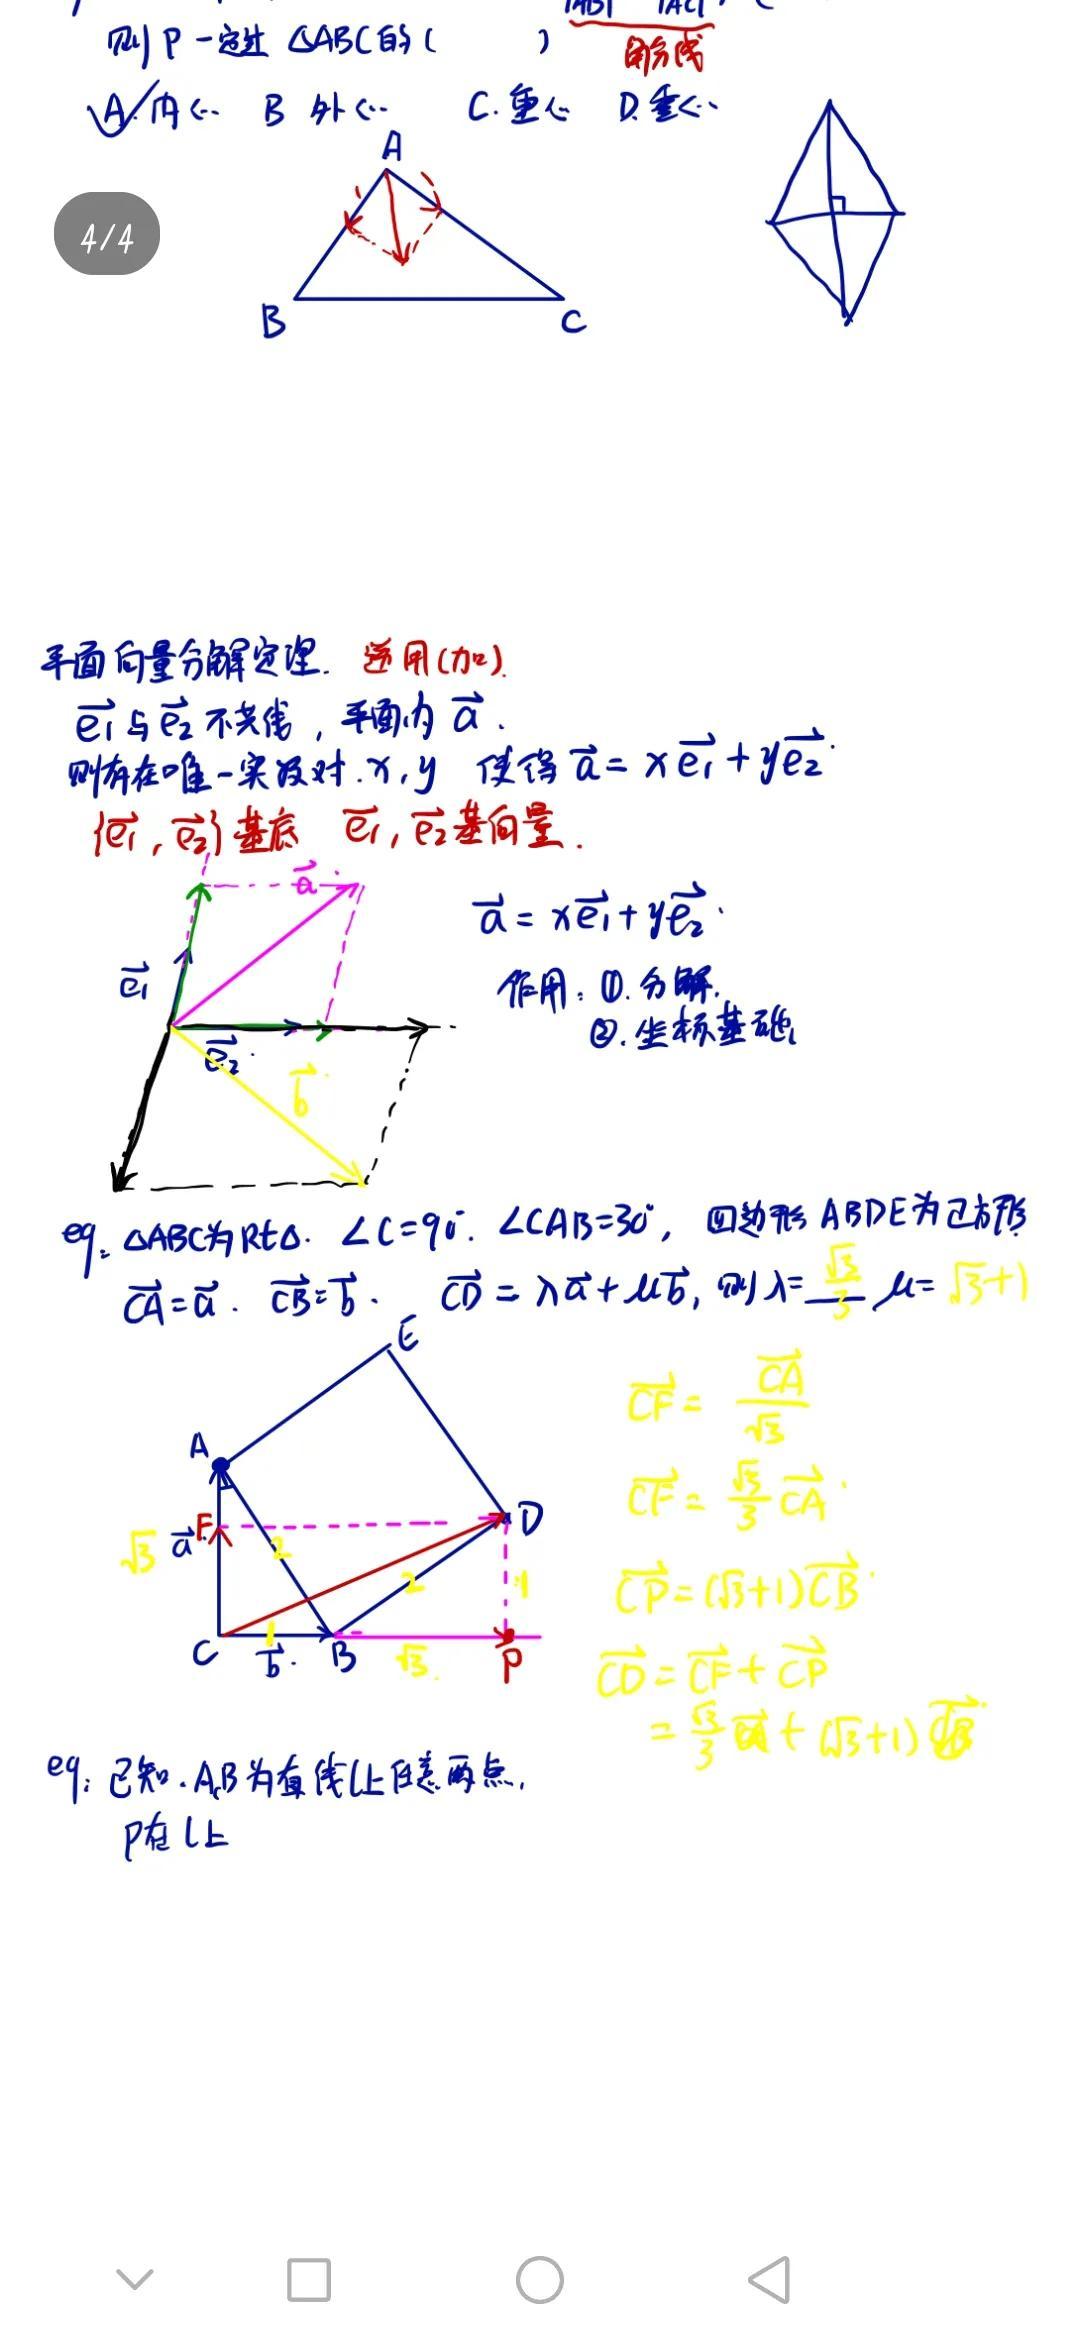 则 P 一定过 △ABC 的 ( )
角分线
A. 内心 B 外心 C. 重心 D. 垂心
4/4
A
B
C
平面向量分解定理. 逆用(加).
e₁ 与 e₂ 不共线, 平面内 a.
则存在唯一实数对 x, y 使得 a = xe₁ + ye₂.
{e₁, e₂} 基底 e₁, e₂ 基向量.
a
a = xe₁ + ye₂.
e₁
作用: ①. 分解.
②. 坐标基础
e₂
b
eg: △ABC为Rt△. ∠C=90°. ∠CAB=30°, 四边形 ABDE 为正方形
CA = a. CB = b. CD = λa + μb, 则 λ = √3/3 μ = √3+1
E
CF = CA/√3
A
CF = √3/3 CA
√3 a F 2 D
2 1
CP = (√3+1)CB
C 1 b B √3 P
CD = CF + CP
= √3/3 CA + (√3+1) CB
eg: 已知. A,B 为直线 l 上任意两点,
P在 l 上